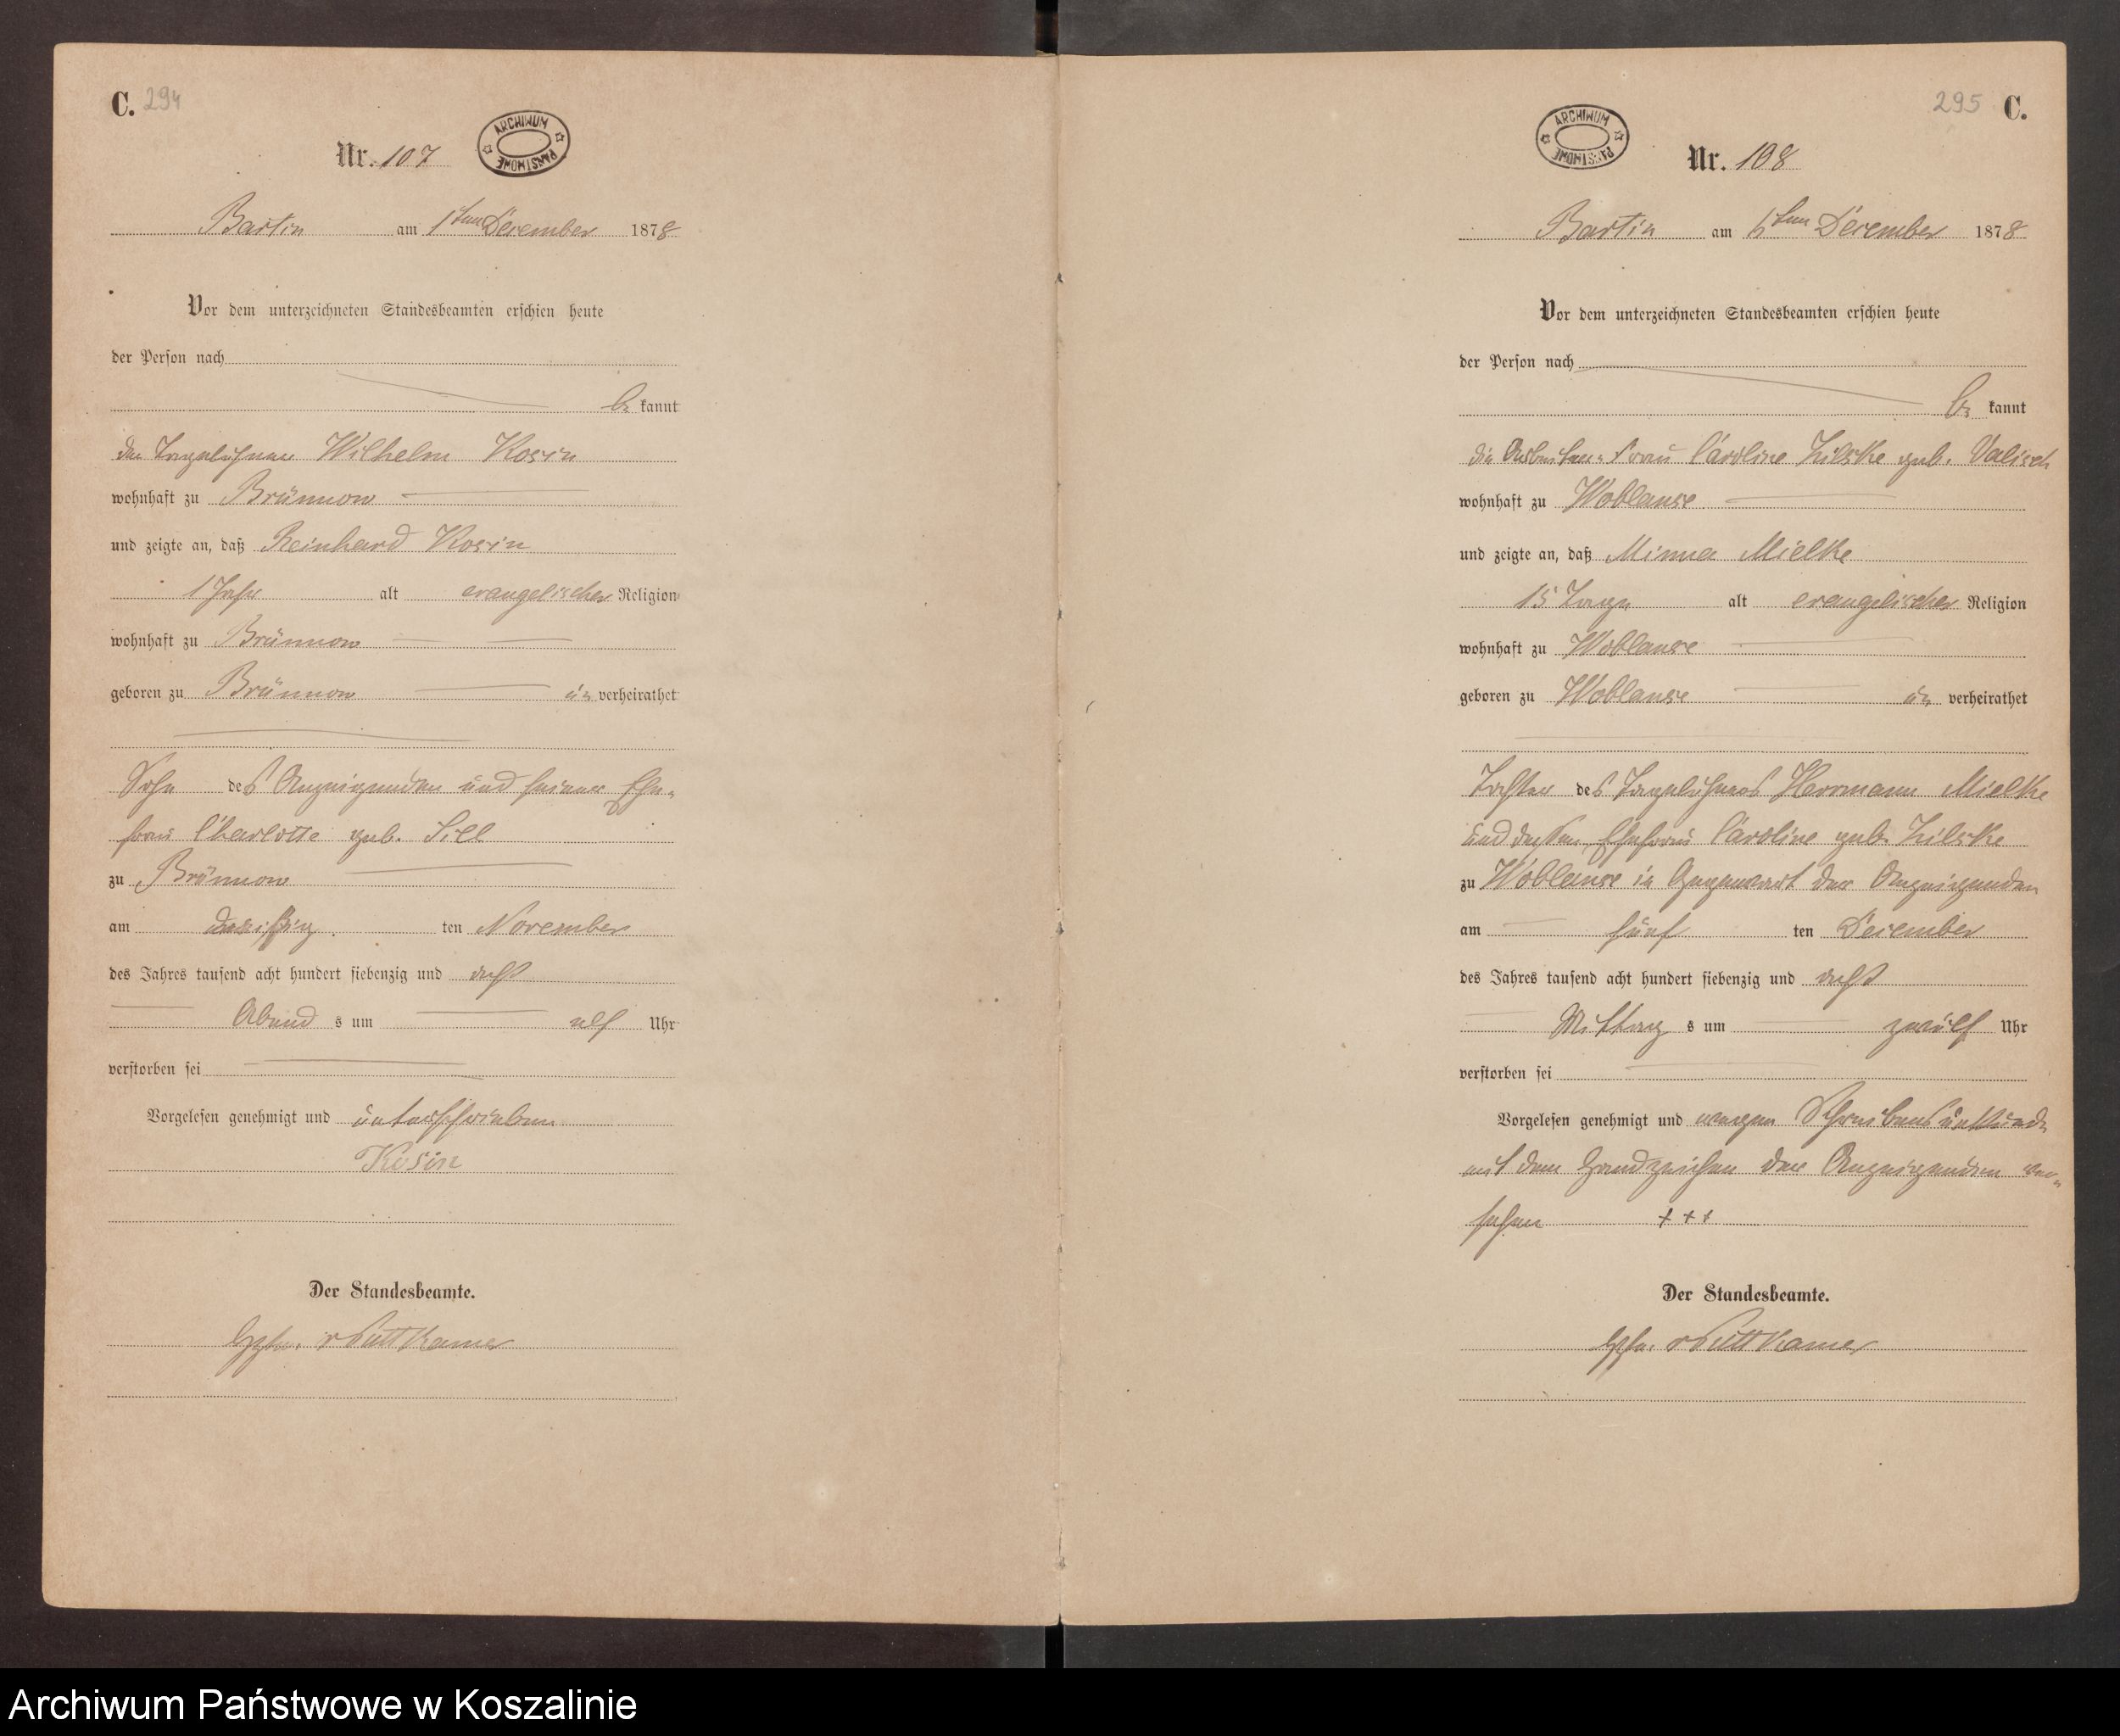 C. 294
Nr. 107
ARCHIWUM PAŃSTWOWE
Bartin am 1ten December 1878
Vor dem unterzeichneten Standesbeamten erschien heute
der Person nach
be kannt
der Tagelöhner Wilhelm Kosin
wohnhaft zu Brünnow
und zeigte an, daß Reinhard Kosin
1 Jahr alt evangelischer Religion
wohnhaft zu Brünnow
geboren zu Brünnow un verheirathet
Sohn des Anzeigenden und seiner Ehe-
frau Charlotte geb. Sill
zu Brünnow
am dreißig ten November
des Jahres tausend acht hundert siebenzig und acht
Abend s um elf Uhr
verstorben sei
Vorgelesen genehmigt und unterschrieben
Kosin
Der Standesbeamte.
v Puttkamer
295 C.
ARCHIWUM PAŃSTWOWE
Nr. 108
Bartin am 6ten December 1878
Vor dem unterzeichneten Standesbeamten erschien heute
der Person nach
be kannt
die Arbeiter-Frau Caroline Zilske geb. Valisch
wohnhaft zu Woblanse
und zeigte an, daß Minna Mielke
15 Tage alt evangelischer Religion
wohnhaft zu Woblanse
geboren zu Woblanse un verheirathet
Tochter des Tagelöhners Herrmann Mielke
und dessen Ehefrau Caroline geb. Zilske
zu Woblanse in Gegenwart der Anzeigenden
am fünf ten December
des Jahres tausend acht hundert siebenzig und acht
Mittag s um zwölf Uhr
verstorben sei
Vorgelesen genehmigt und wegen Schreibensunkunde
mit dem Handzeichen der Anzeigenden ver-
sehen +++
Der Standesbeamte.
v Puttkamer
Archiwum Państwowe w Koszalinie